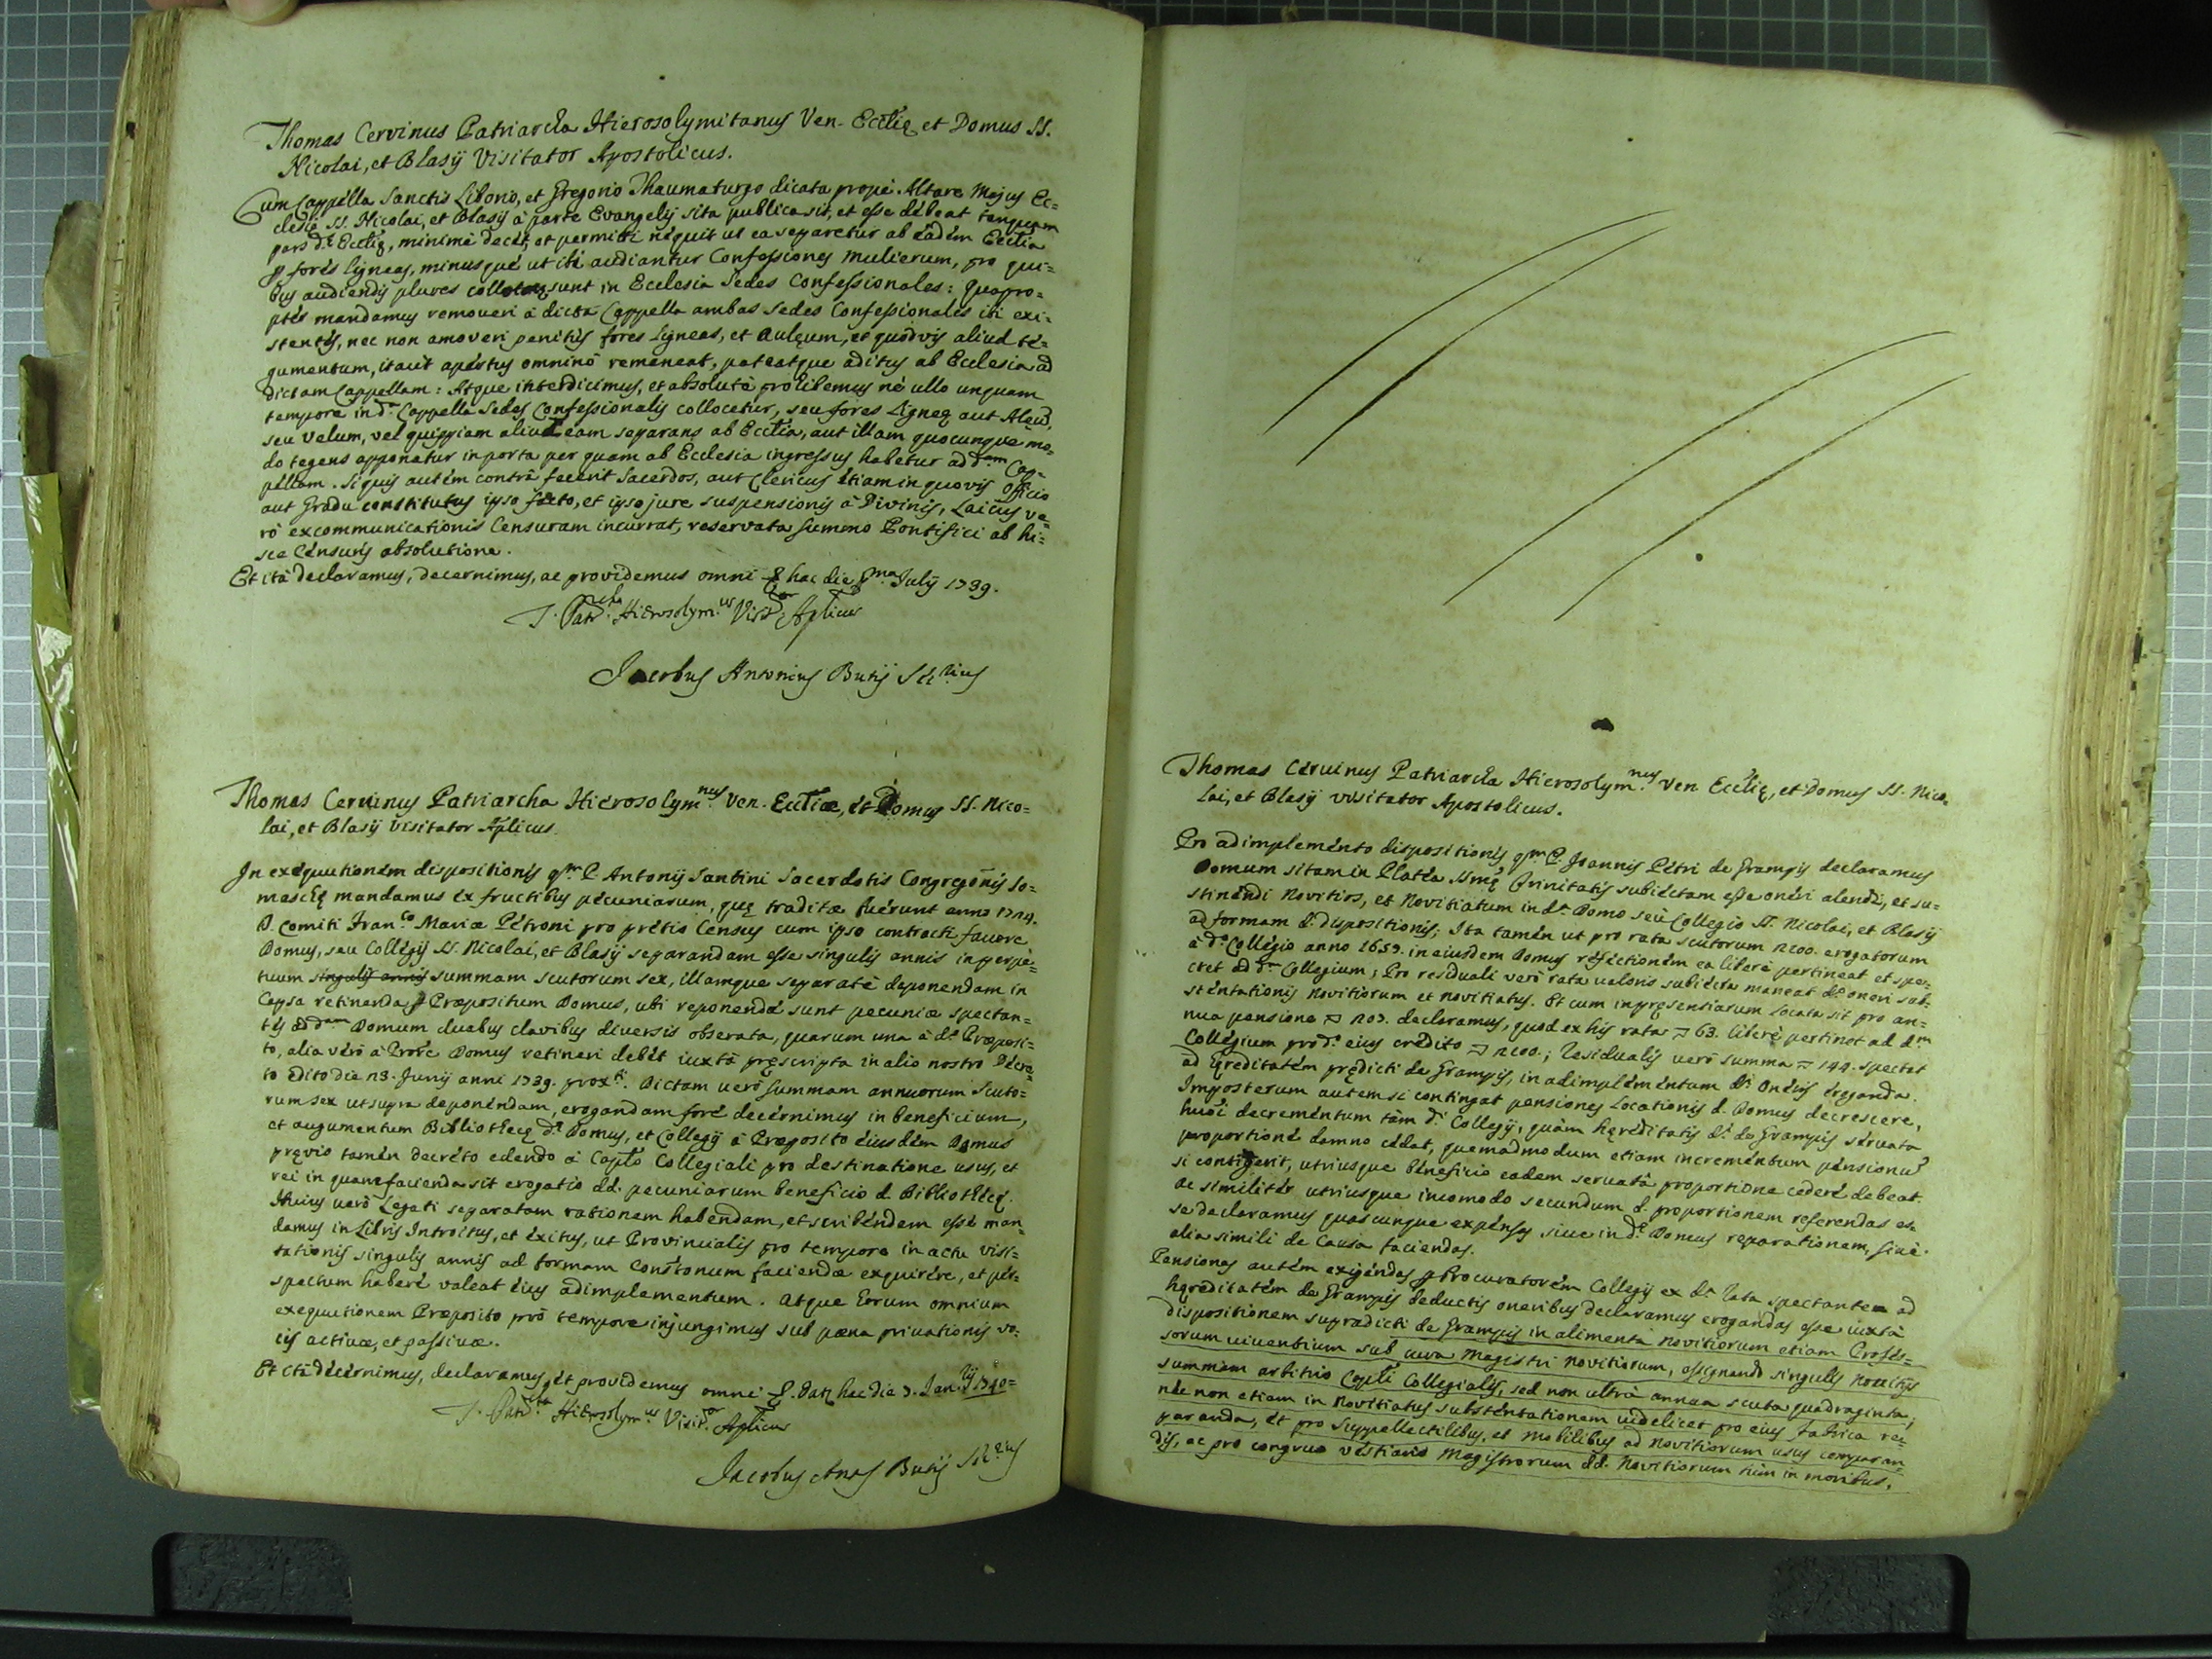 Thomas Cervinus Patriarcha Hierosolymitanus Ven. Ecclię et Domus SS.
Nicolai, et Blasij Visitator Apostolicus.
Cum Cappella Sanctis Liborio, et Gregorio Thaumaturgo dicata propè Altare Majus Ec=
clesię SS. Nicolai, et Blasij à parte Evangelij sita publica sit, et esse debeat tanquam
pars d.ę Eccłię, minimè decet, et permitti nequit ut ea separetur ab eadem Eccłia
p fores ligneas, minusque ut ibi audiantur Confessiones Mulierum, pro qui=
bus audiendis plures collocatę sunt in Ecclesia Sedes Confessionales: Quapro=
pter mandamus removeri à dicta Cappella ambas Sedes Confessionales ibi exi=
stentes, nec non amoveri penitùs fores Ligneas, et Aulęum, et quodvis aliud te=
gumentum, itaut apertus omninò remaneat, pateatque aditus ab Ecclesia ad
dictam Cappellam: Atque interdicimus, et absolutè prohibemus nè ullo unquam
tempore in d.ª Cappella Sedes Confessionalis collocetur, seu fores Ligneę aut
seu Velum, vel quippiam aliud eam separans ab Eccłia, aut illam quocunque mo=
do tegens apponatur in porta per quam ab Ecclesia ingressus habetur ad d.am Cap=
pellam. Si quis autem contrà fecerit Sacerdos, aut Clericus etiam in quovis Officio
aut Gradu constitutus ipso facto, et ipso jure suspensionis à Divinis, Laicus ve=
rò excommunicationis Censuram incurrat, reservata Summo Pontifici ab hi=
sce Censuris absolutione.
Et ità declaramus, decernimus, ac providemus omni hac die p.ma Julij 1739.
T. Patr.cha Hierosolym.us Visit.or Aplicus
Jacobus Antonius Butij Scrius
Thomas Cervinus Patriarcha Hierosolym.nus Ven. Eccłiæ, et Domus SS. Nico=
lai, et Blasij Visitator Aplicus.
In exequutionem dispositionis qm P. Antonij Santini Sacerdotis Congregõnis So=
maschę mandamus ex fructibus pecuniarum, quę traditæ fuerunt anno 1714.
D. Comiti Fran.co Mariæ Petroni pro pretio Census cum ipso contracti favore
Domus, seu Collegij SS. Nicolai, et Blasij separandam esse singulis annis in perpe=
tuum singulis annis summam scutorum sex, illamque separatè deponendam in
Capsa retinenda p Præpositum Domus, ubi reponendę sunt pecuniæ spectan=
tes ad d.am Domum duabus clavibus diversis obserata, quarum una à d.º Præposi=
to, alia verò à Procre Domus retineri debet iuxtà pręscripta in alio nostro Decre=
to edito die 13. Junij anni 1739. prox.i. Dictam verò summam annuorum Scuto=
rum sex ut supra deponendam, erogandam fore decernimus in beneficium,
et augumentum Bibliothecę d.ę Domus, et Collegij à Præposito eiusdem Domus
pręvio tamen decreto edendo à Capło Collegiali pro destinatione usus, et
rei in quam facienda sit erogatio dd. pecuniarum beneficio d. Bibliothecę.
Huius verò Legati separatam rationem habendam, et scribendam esse man=
damus in Libris Introitus, et exitus, ut Provincialis pro tempore in actu visi=
tationis singulis annis ad formam Consťonum faciendæ exquirere, et per=
spectum habere valeat eius adimplementum. Atque eorum omnium
exequutionem Præposito prò tempore injungimus sub pæna privationis vo=
cis activæ, et passivæ.
Et ità decernimus, declaramus, et providemus omni Datz hac die 3. Jan.rij 1740=
T. Patr.cha Hierosolym.us Visit.or Aplicus
Jacobus Ants Butij Scrius
Thomas Cervinus Patriarcha Hierosolym.nus Ven Eccłię, et Domus SS. Nico=
lai, et Blasij visitator Apostolicus.
Pro adimplemento dispositionis qm P. Joannis Petri de Grampis declaramus
Domum sitam in Platea SSmę Trinitatis subiectam esse oneri alendi, et su=
stinendi Novitios, et Novitiatum in d.ª Domo seu Collegio SS. Nicolai, et Blasij
ad formam d. dispositionis; Ita tamen ut pro rata scutorum 2100. erogatorum
à d.º Collegio anno 1659. in eiusdem Domus refectionem ea liberè pertineat et spe=
ctet ad d.m Collegium; Pro residuali verò rata valoris subiecta maneat d.º oneri sub=
stentationis Novitiorum et Novitiatus. Et cum inpręsentiarum Locata sit pro an=
nua pensione 207. declaramus, quod ex his rata 63. liberè pertinet ad d.m
Collegium pro d.º eius credito 2100.; Residualis verò summa 144. spectet
ad Hereditatem prędicti de Grampis, in adimplementum d.i Oneris eroganda.
Imposterum autem si contingat pensiones Locationis d. Domus decrescere,
huõi decrementum tàm d.i Collegij, quàm hęreditatis d.i de Grampis servata
proportione damno cedat, quemadmodum etiam incrementum pensionũ
si contigerit, utriusque beneficio eadem servata proportione cedere debeat.
Ac similiter utriusque incomodo secundum d. proportionem referendas es=
se declaramus quascunque expensas sive in d.ę Domus reparationem, sivè
alia simili de Causa faciendas.
Pensiones autem exigendas p Procuratorem Collegij ex d.ª Rata spectantem ad
hęreditatem de Grampis deductis oneribus declaramus erogandas esse iuxtà
dispositionem supradicti de Grampis in alimenta Novitiorum etiam Profes=
sorum viventium sub cura Magistri Novitiorum, assignando singulis Novitijs
summam arbitrio Capłi Collegialis, sed non ultrà annua scuta quadraginta,
nèc non etiam in Novitiatus substentationem videlicet pro eius fabrica re=
paranda, et pro Suppellectilibus, et Mobilibus ad Novitiorum usus comparan=
dis, ac pro congruo vestiario Magistrorum dd. Novitiorum tùm in moribus,